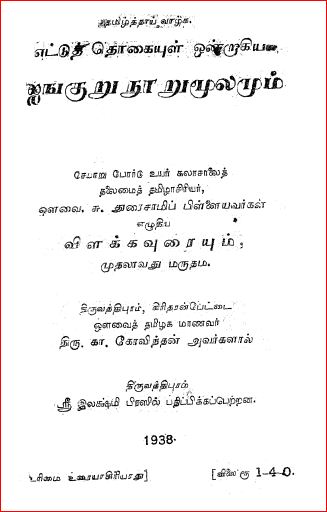 தமிழ்த்தாய் வாழ்க.
எட்டுத் தொகையுள் ஒன்றுகிய
ஐங்குறுநூறுமூலமும்
சேயாறு போர்டு உயர் கலாசாலைத்
தலைமைத் தமிழாசிரியர்,
ஔவை. சு. துரைசாமிப் பிள்ளையவர்கள்
எழுதிய
விளக்கவுரையும்,
முதலாவது மருதம்.
திருவத்திபுரம், கிரிதரன்பேட்டை
ஔவைத் தமிழக மாணவர்
திரு. கா. கோவிந்தன் அவர்களால்
திருவத்திபுரம்
ஸ்ரீ இலக்ஷ்மி பிரஸில் பதிப்பிக்கப்பெற்றன.
1938.
உரிமை உரையாசிரியரது]
[விலை ரூ 1-4-0.